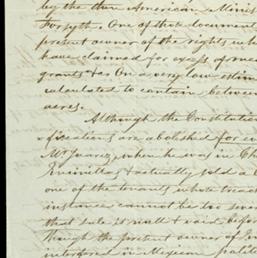 by the then American Minis
Forsyth. One of these document
present owner of the rights wh
have claimed for excess of mea
grants &a On a very low estim
calculated to contain between
acres.
Although the Constitution
fiscations are abolished for ev
Mr Juarez, when he was in Ch
actually sold a
one of the tenants whose trea
instance cannot be too seve
that sale is null & void befor
though the present owner of
interfered in Mexican polit